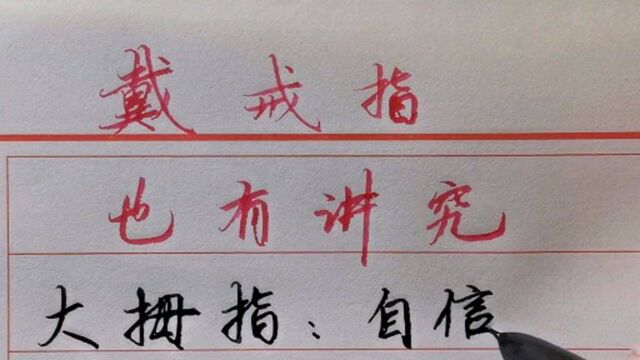 戴戒指
也有讲究
大拇指：自信